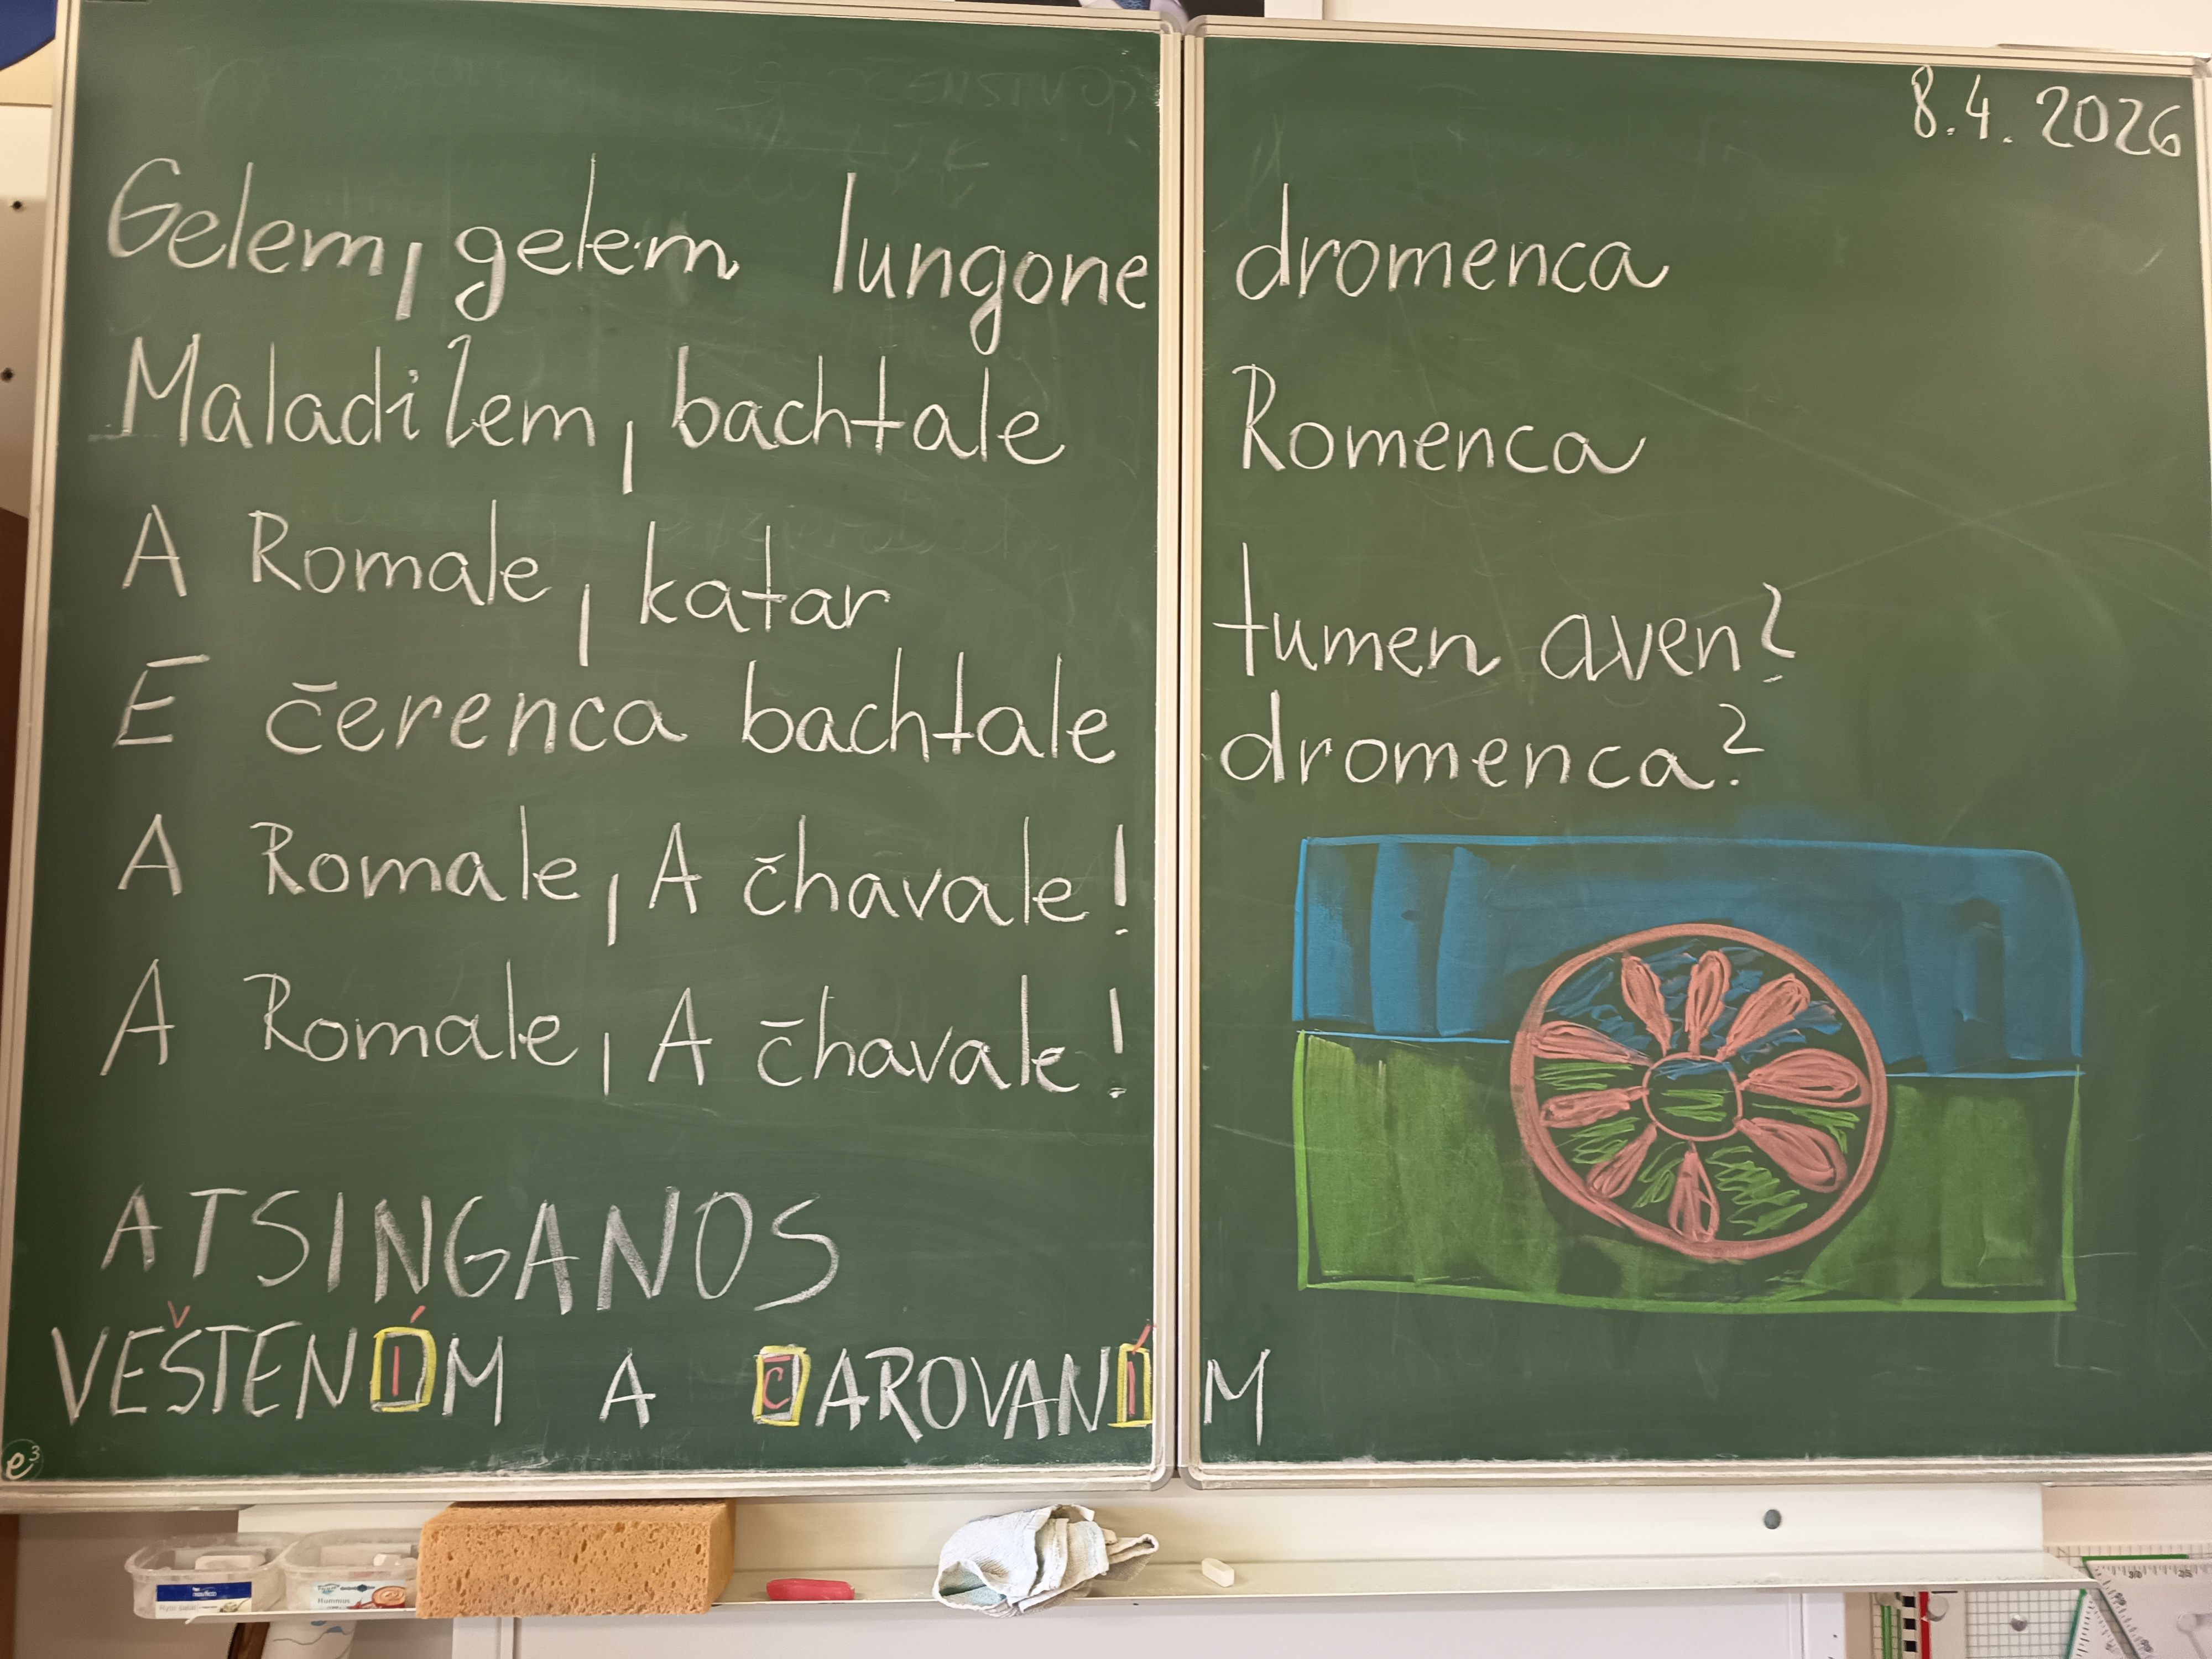 8.4. 2026
Gelem, gelem lungone dromenca
Maladilem, bachtale Romenca
A Romale, katar tumen aven?
E čerenca bachtale dromenca?
A Romale, A čhavale!
A Romale, A čhavale!
ATSINGANOS
VEŠTENÍM A ČAROVANÍM
e³
Hummus